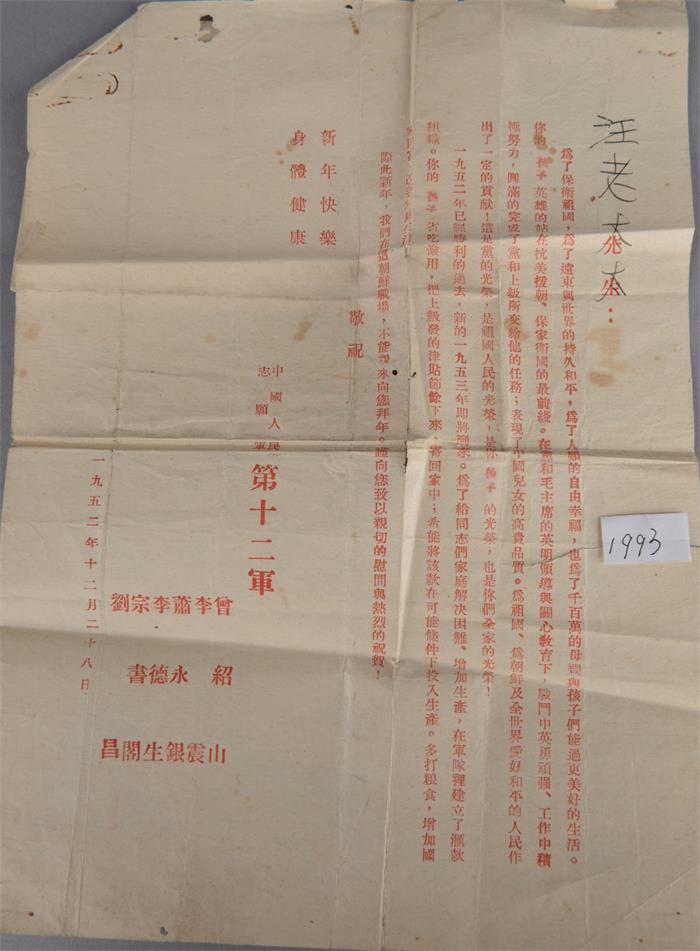 汪老太太：
為了保衛祖國，為了遠東與世界的持久和平，為了人類的自由幸福，也為了千百萬的母親與孩子們能過更美好的生活。
你的 英雄的站在抗美援朝、保家衛國的最前綫。在黨和毛主席的英明領導與關心教育下，戰鬥中英勇頑强、工作中積
極努力，圓滿的完成了黨和上級所交給他的任務；表現了中國兒女的高貴品質。為祖國、為朝鮮及全世界愛好和平的人民作
出了一定的貢獻！這是黨的光榮，是祖國人民的光榮，是你 的光榮，也是你們全家的光榮！
一九五二年已經勝利的過去，新的一九五三年即將到來。為了給同志們家庭解决困難、增加生產，在軍隊裡建立了滙款
組織。你的 省吃儉用，把上級發的津貼節餘下來，寄回家中；希能將該款在可能條件下投入生產。多打粮食，增加國
際此新年，我們在遠朝鮮戰場，不能親來向您拜年。謹向您致以親切的慰問與熱烈的祝賀！
敬祝
新年快樂
身體健康
中國人民
志願軍
第十二軍
曾紹山
李震
蕭永銀
李德生
宗書閣
劉昌
一九五二年十二月二十八日
1993